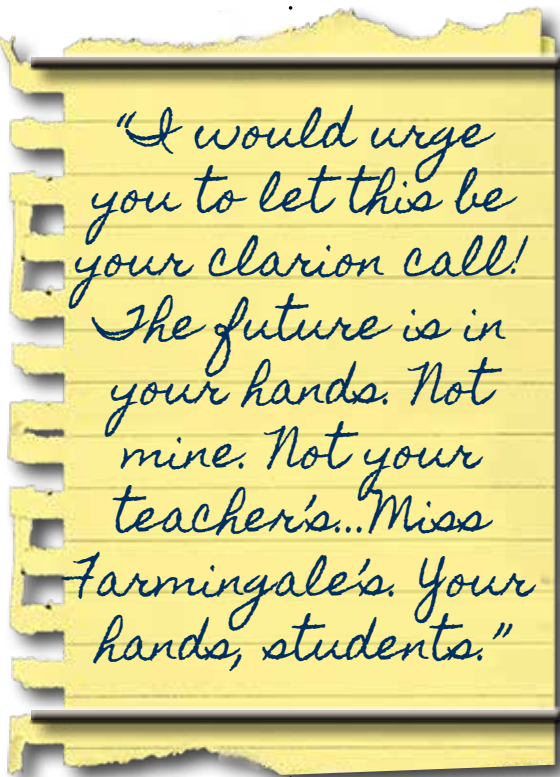 "I would urge
you to let this be
your clarion call!
The future is in
your hands. Not
mine. Not your
teacher's...Miss
Farmingale's. Your
hands, students."